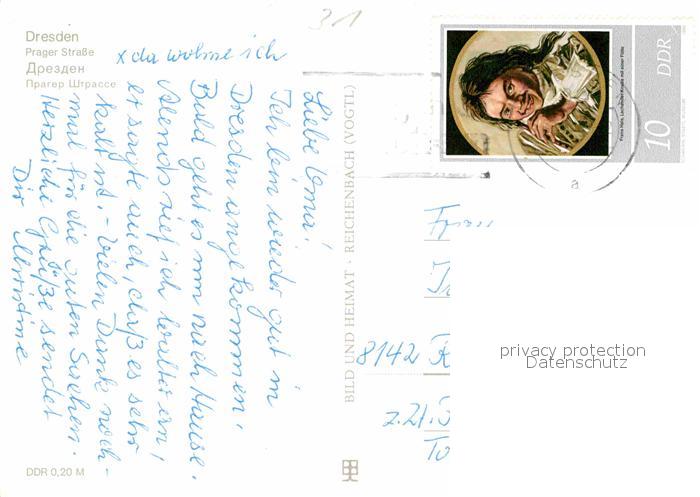 31
Dresden
Prager Straße
Дрезден
Прагер Штрассе
x da wohne ich
Liebe Oma!
Ich bin wieder gut in
Dresden angekommen.
Bald geht es nun nach Hause.
Abends rief ich Walter an!
er sagte auch, daß es sehr
kalt ist. - Vielen Dank noch-
mal für die guten Sachen.
Herzliche Grüße sendet
Dir Christine
DDR 0,20 M
BILD UND HEIMAT · REICHENBACH (VOGTL)
Frans Hals, Lachender Knabe mit einer Flöte
10 DDR
a
Frau
8142
z. Zt.
privacy protection
Datenschutz